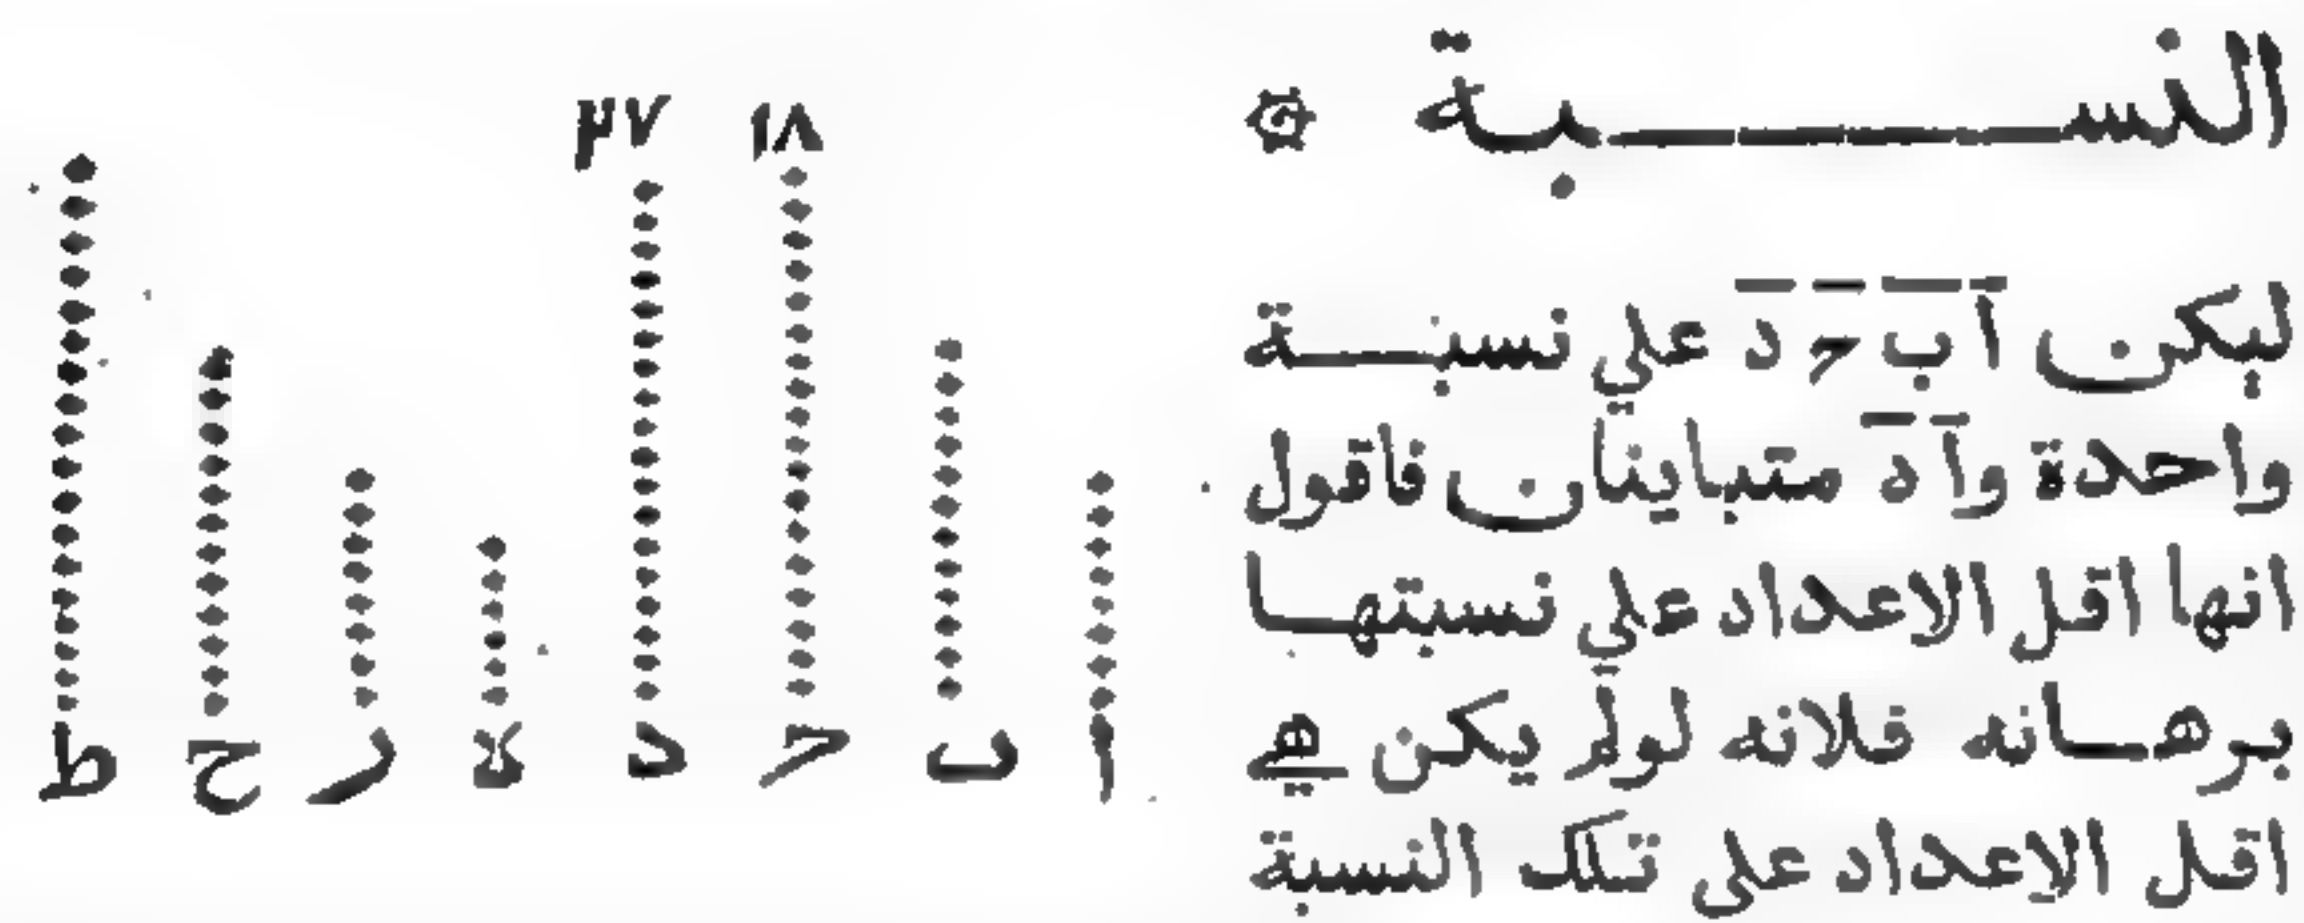 النسبة ۞
ليكن ا ب ح د علي نسبة
واحدة وا د متباينان فاقول
انها اقل الاعداد علي نسبتها
برهانه فلانه لو لم يكن هي
اقل الاعداد على تلك النسبة
١٨ ٣٧
ا ب ح د ﻻ ر ح ط